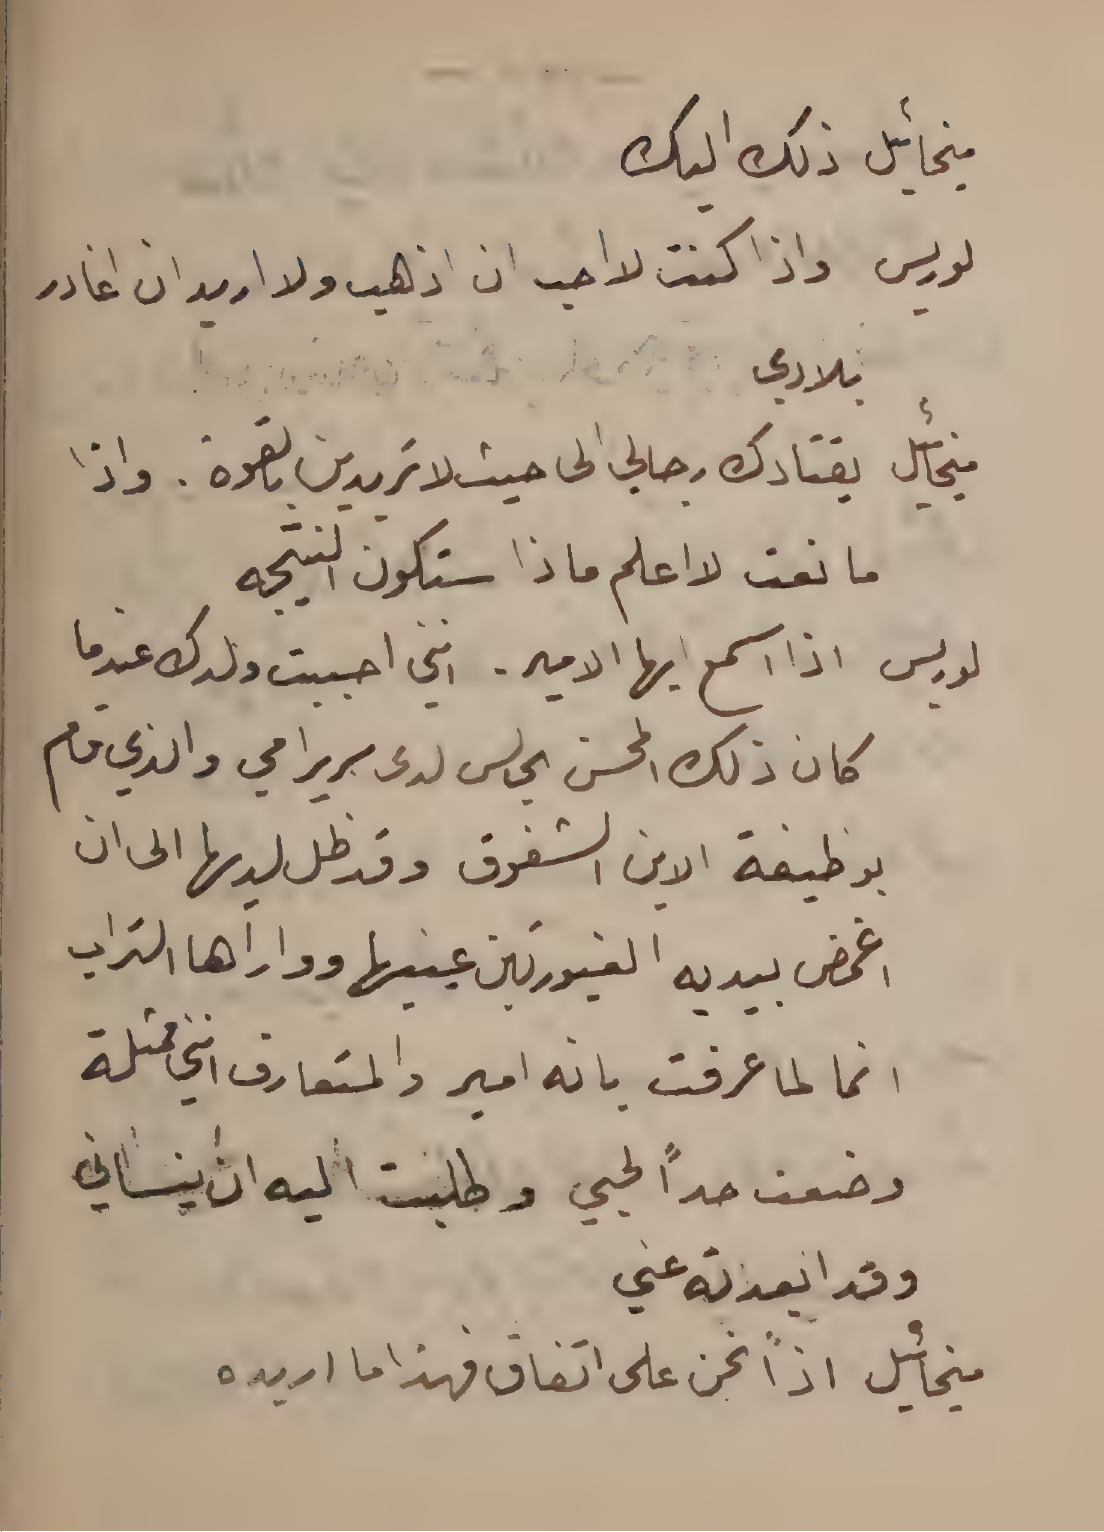 ميخائيل ذلك اليك
لوريس واذا كنت لا احب ان اذهب ولا اريد ان اغادر
بلادي
ميخائيل يقتادك رجالي الى حيث لا تريدين بالقوة . واذا
مانعت لا اعلم ماذا ستكون النتيجه
لوريس اذا اسمع ايها الامير . انني احببت ولدك عندما
كان ذلك المحسن يجلس لدى سرير امي والذي قام
بوظيفة الابن الشفوق وقد ظل لديها الى ان
اغمض بيديه الغيورتين عينيها وواراها التراب
انما لما عرفت بانه امير والمتعارف انني ممثلة
وضعت حداً لحبي وطلبت اليه ان ينساني
وقد ابعدته عني
ميخائيل اذاً نحن على اتفاق فهذا ما اريده